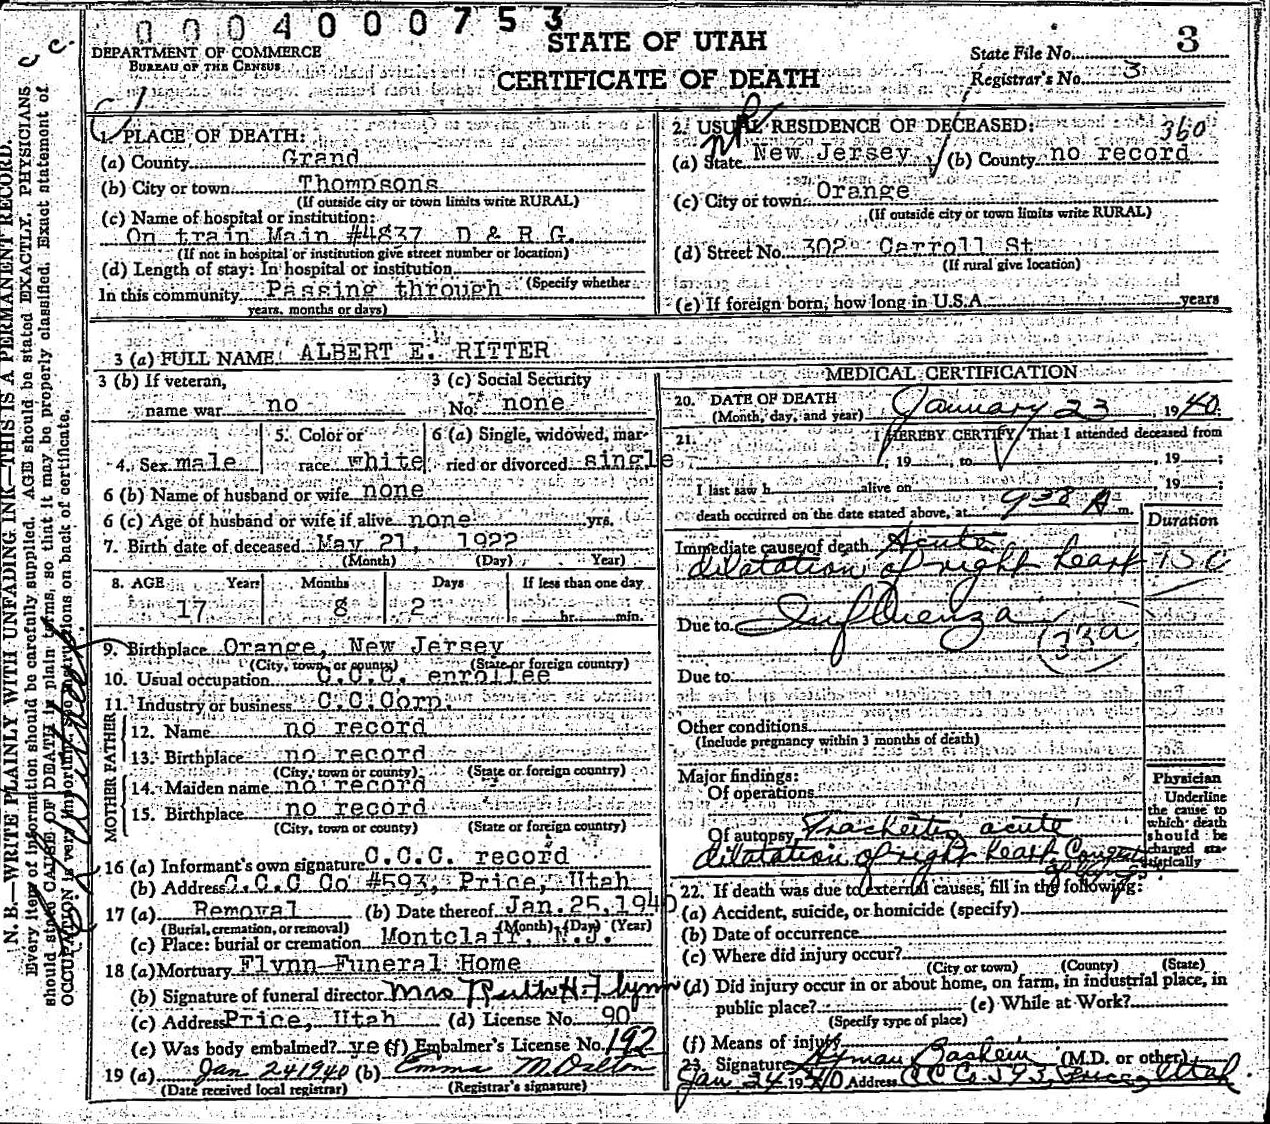 0 0 0 4 0 0 0 7 5 3
DEPARTMENT OF COMMERCE
BUREAU OF THE CENSUS
STATE OF UTAH
CERTIFICATE OF DEATH
State File No. 3
Registrar's No. 3
N. B.—WRITE PLAINLY WITH UNFADING INK—THIS IS A PERMANENT RECORD.
Every item of information should be carefully supplied. AGE should be stated EXACTLY. PHYSICIANS
should state CAUSE OF DEATH in plain terms, so that it may be properly classified. Exact statement of
OCCUPATION is very important. See instructions on back of certificate.
1. PLACE OF DEATH:
(a) County Grand
(b) City or town Thompsons
(If outside city or town limits write RURAL)
(c) Name of hospital or institution:
On train Main #4837 D & R G.
(If not in hospital or institution give street number or location)
(d) Length of stay: In hospital or institution
In this community Passing through (Specify whether
years, months or days)
2. USUAL RESIDENCE OF DECEASED: 360
(a) State New Jersey (b) County no record
(c) City or town Orange
(If outside city or town limits write RURAL)
(d) Street No. 302 Carroll St
(If rural give location)
(e) If foreign born, how long in U.S.A. years
3 (a) FULL NAME ALBERT E. RITTER
3 (b) If veteran, 3 (c) Social Security
name war no No. none
4. Sex male 5. Color or race white 6 (a) Single, widowed, married or divorced single
6 (b) Name of husband or wife none
6 (c) Age of husband or wife if alive none yrs.
7. Birth date of deceased May 21, 1922
(Month) (Day) Year)
8. AGE Years Months Days If less than one day
17 8 2 hr. min.
9. Birthplace Orange, New Jersey
(City, town, or county) (State or foreign country)
10. Usual occupation C.C.C. enrollee
11. Industry or business C.C.Corp.
FATHER
12. Name no record
13. Birthplace no record
(City, town or county) (State or foreign country)
MOTHER
14. Maiden name no record
15. Birthplace no record
(City, town or county) (State or foreign country)
16 (a) Informant's own signature C.C.C. record
(b) Address C.C.C Co #593, Price, Utah
17 (a) Removal (b) Date thereof Jan. 25, 1940
(Burial, cremation, or removal) (Month) (Day) (Year)
(c) Place: burial or cremation Montclair, N.J.
18 (a) Mortuary Flynn Funeral Home
(b) Signature of funeral director Mrs Ruth H. Flynn
(c) Address Price, Utah (d) License No. 90
(e) Was body embalmed? yes (f) Embalmer's License No. 192
19 (a) Jan 24 1940 (b) Emma M Dalton
(Date received local registrar) (Registrar's signature)
MEDICAL CERTIFICATION
20. DATE OF DEATH
(Month, day, and year) January 23 1940.
21. I HEREBY CERTIFY, That I attended deceased from
, 19 , to , 19 ;
I last saw h alive on , 19 ;
death occurred on the date stated above, at 9 38 A m.
Duration
Immediate cause of death Acute
dilatation of right heart
Due to Influenza
33a
Due to
Other conditions
(Include pregnancy within 3 months of death)
Major findings:
Of operations
Of autopsy Tracheitis acute
dilatation of right heart
Physician
Underline
the cause to
which death
should be
charged statistically
22. If death was due to external causes, fill in the following:
(a) Accident, suicide, or homicide (specify)
(b) Date of occurrence
(c) Where did injury occur?
(City or town) (County) (State)
(d) Did injury occur in or about home, on farm, in industrial place, in
public place? (e) While at Work?
(Specify type of place)
(f) Means of injury
23. Signature Hyman Bashein (M.D. or other)
Jan. 24 1940 Address CCC Co. 593, Price, Utah